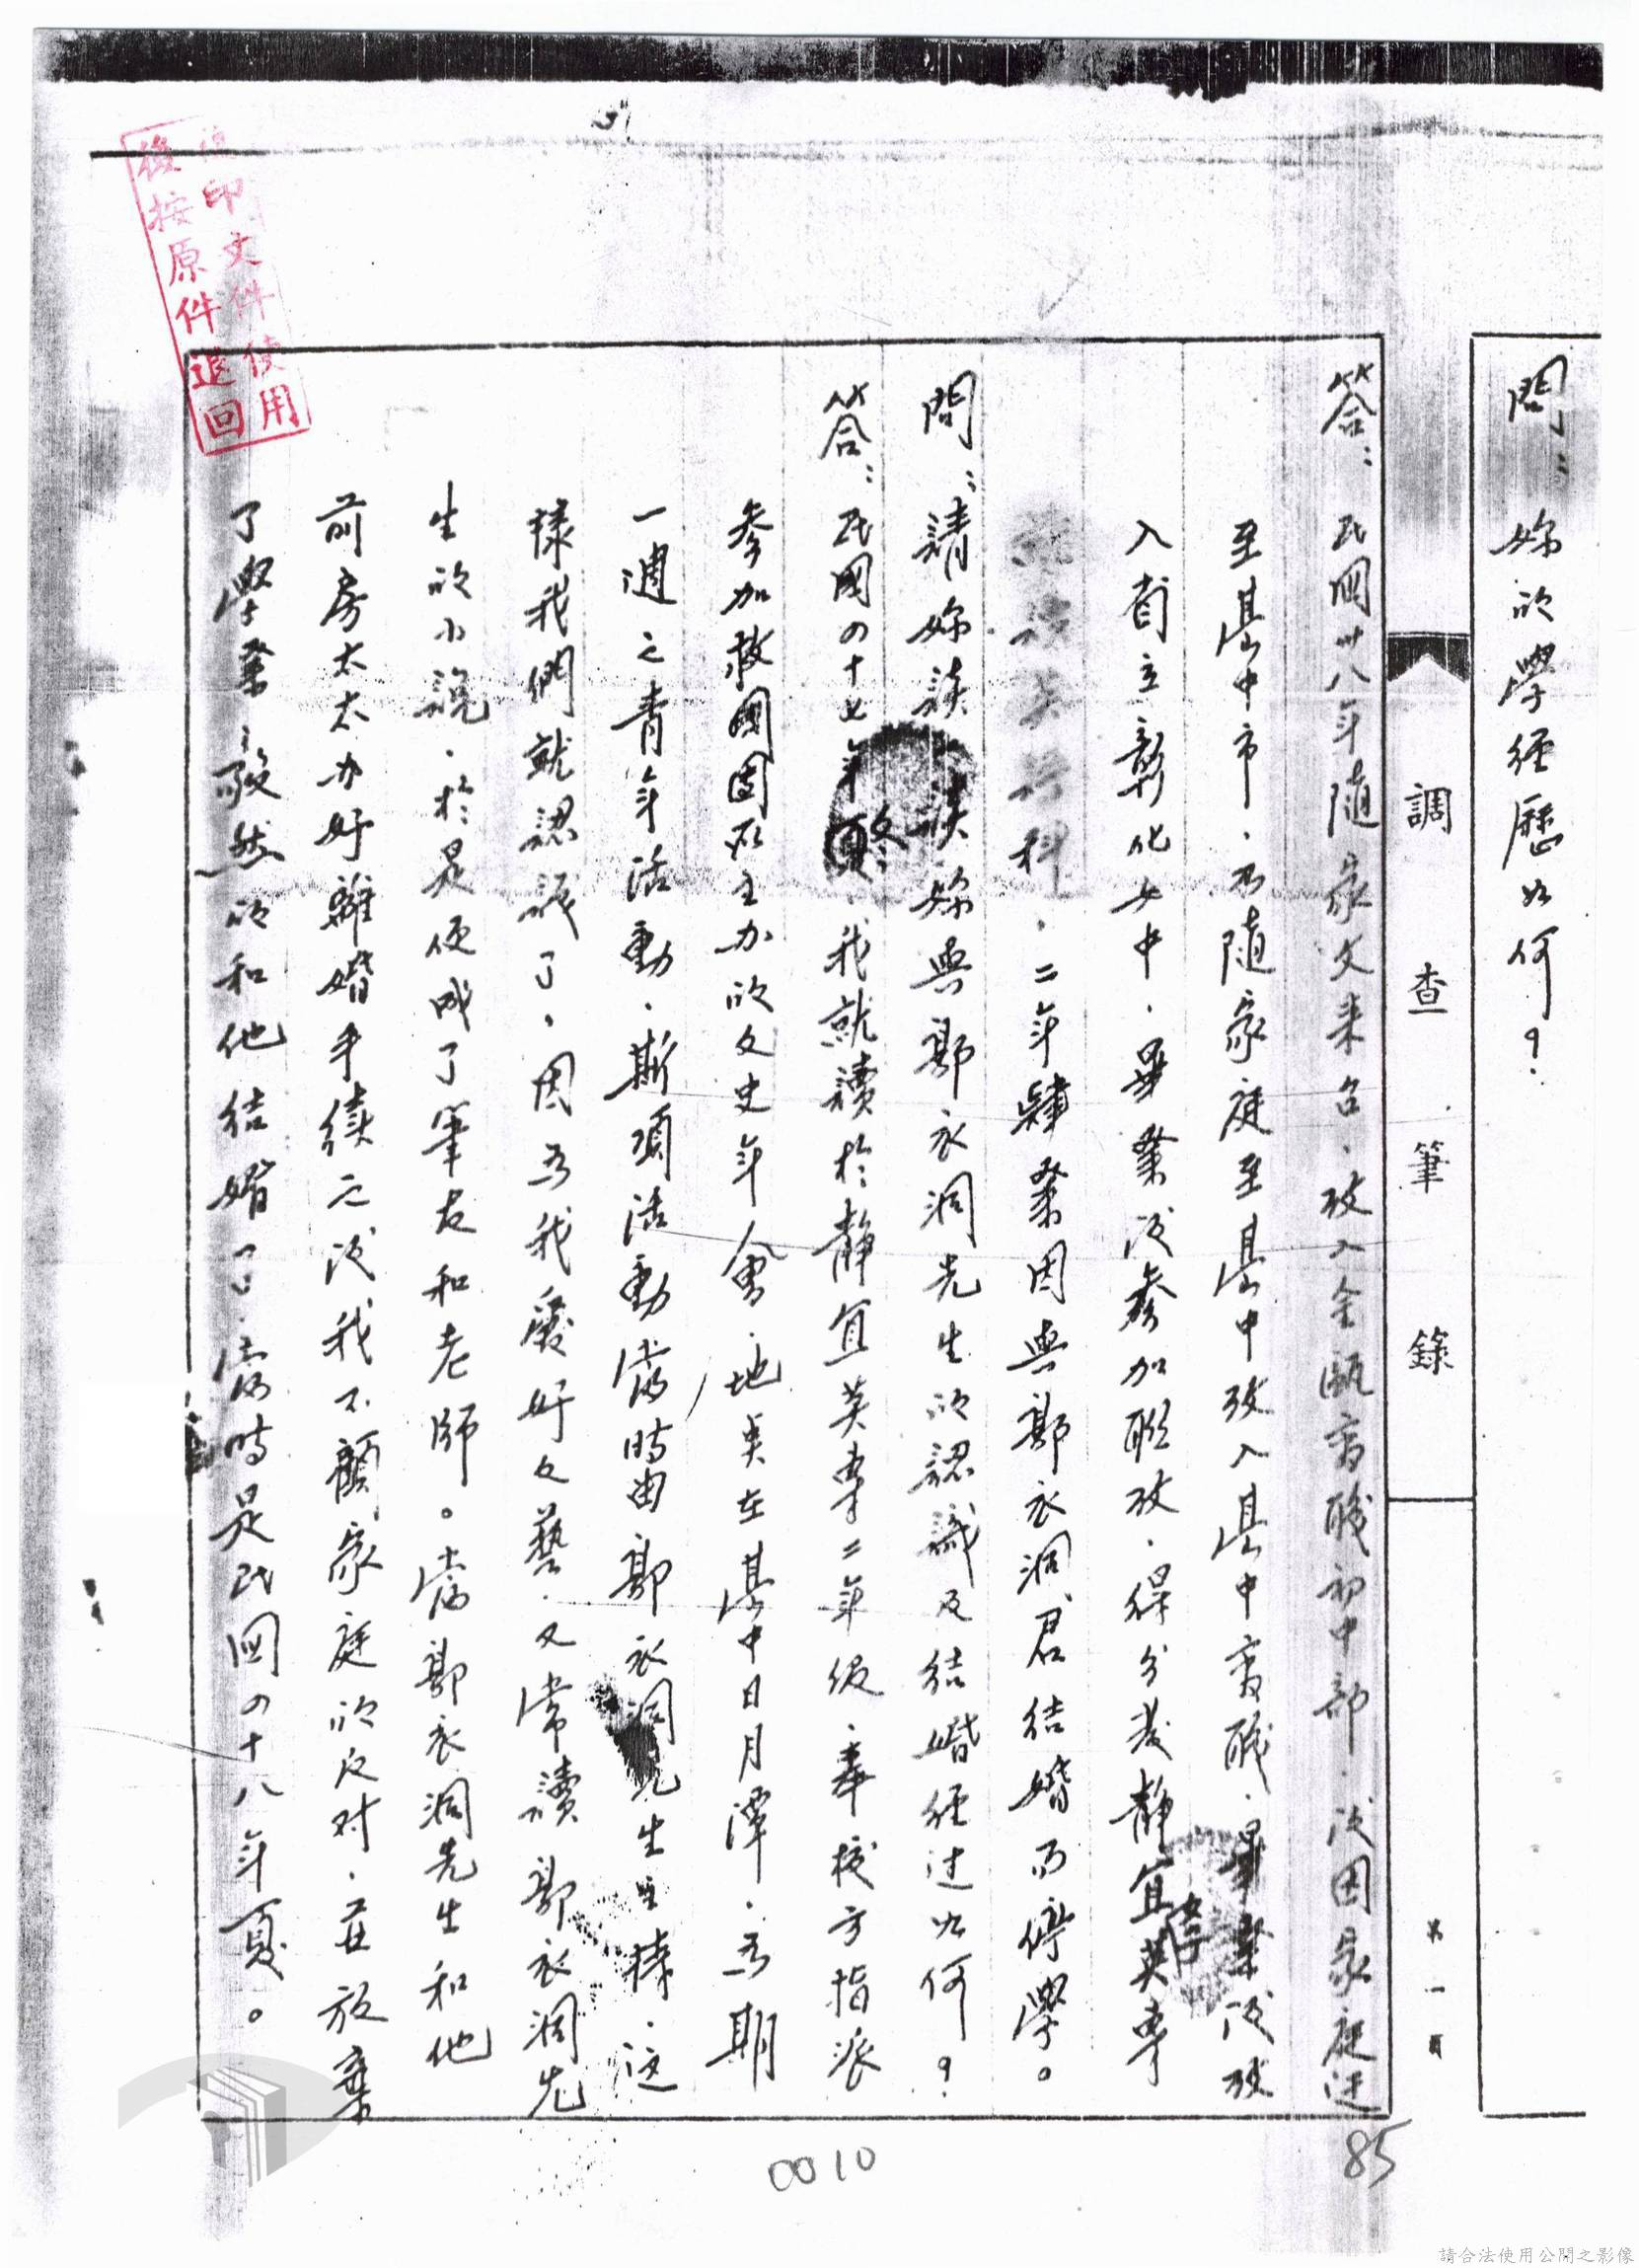 問：妳的學經歷如何？
調查筆錄
第一頁
答：民國卅八年隨家父來台，考入金甌商職初中部，後因家庭迁
至臺中市，乃隨家庭至臺中考入臺中商職，畢業後考
入省立彰化女中，畢業後參加聯考，得分發靜宜英專
科，二年肄業因與郭衣洞君結婚而停學。
問：請妳談談妳與郭衣洞先生的認識及結婚經过如何？
答：民國四十七年夏，我就讀於靜宜英專二年级，奉校方指派
參加救國團所主办的文史年會，地点在臺中日月潭，为期
一週之青年活動，斯項活動當時由郭衣洞先生主持，这
樣我們就認識了，因为我愛好文藝，又常讀郭衣洞先
生的小說，於是便成了筆友和老師。當郭衣洞先生和他
前房太太办好離婚手續之後我不顧家庭的反对，並放棄
了學業，毅然的和他结婚了，當時是民國四十八年夏。
復印文件使用
後按原件退回
0010
85
請合法使用公開之影像